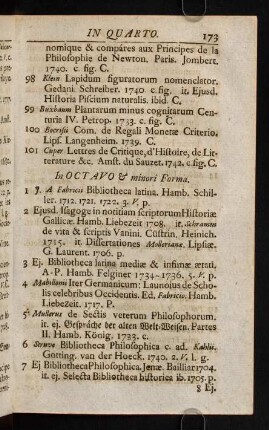 IN QUARTO. 173
nomique & compáres aux Principes de la
Philosophie de Newton. Paris. Jombert.
1740. c. fig. C.
98 Klein Lapidum figuratorum nomenclator.
Gedani Schreiber. 1740 c. fig. it. Ejusd.
Historia Piscium naturalis. ibid. C.
99 Buxbaum Plantarum minus cognitarum Cen-
turia IV. Petrop. 1733. c. fig. C.
100 Boërsii Com. de Regali Monetæ Criterio.
Lips. Langenheim. 1739. C.
101 Cuper Lettres de Critique, d'Histoire, de Lit-
terature &c. Amst. du Sauzet. 1742. c. fig. C.
In OCTAVO & minori Forma.
1 J. A Fabricii Bibliotheca latina. Hamb. Schil-
ler. 1712. 1721. 1722. 3. V. p.
2 Ejusd. Isagoge in notitiam scriptorum Historiæ
Gallicæ Hamb. Liebezeit 1708. it. Schramm
de vita & scriptis Vanini. Cüstrin. Heinich.
1715. it. Dissertationes Mollerianæ. Lipsiæ.
G. Laurent. 1706. p.
3 Ej. Bibliotheca latina mediæ & infimæ ætati.
A-P. Hamb. Felginer 1734-1736. 5. V. p.
4 Mabillonii Iter Germanicum: Launoius de Scho-
lis celebribus Occidentis. Ed. Fabricio. Hamb.
Liebezeit. 1717. P.
5 Mullerus de Sectis veterum Philosophorum.
it. ej. Gespräche der alten Welt-Weisen. Partes
II. Hamb. König. 1733. c.
6 Struve Bibliotheca Philosophica c. ad. Kahlii.
Gotting. van der Hoeck. 1740. 2. V. l. g.
7 Ej Bibliotheca Philosophica. Jenæ. Bailliar 1704.
it. ej. Selecta Bibliotheca historica ib. 1705. p.
8 Ej.